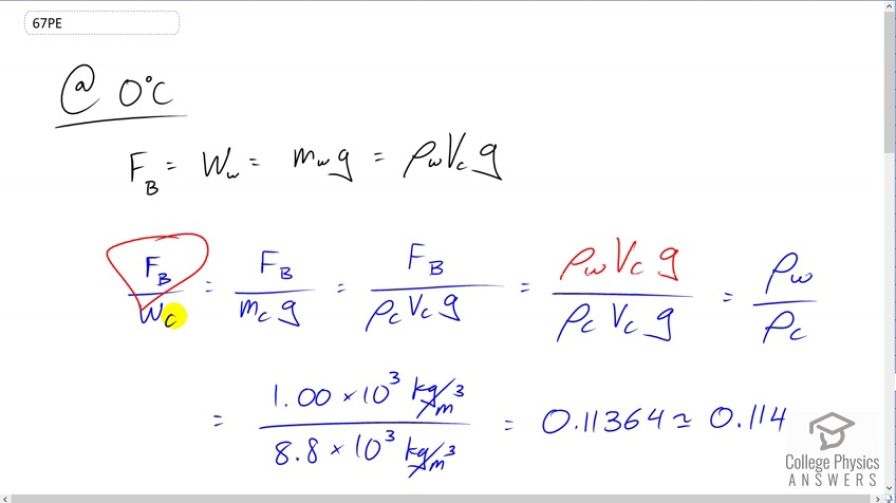 67PE
@ 0°C
F_B = W_w = m_w g = ρ_w V_c g
F_B / W_c = F_B / m_c g = F_B / ρ_c V_c g = ρ_w V_c g / ρ_c V_c g = ρ_w / ρ_c
= 1.00 × 10³ kg/m³ / 8.8 × 10³ kg/m³ = 0.11364 ≃ 0.114
College Physics
ANSWERS